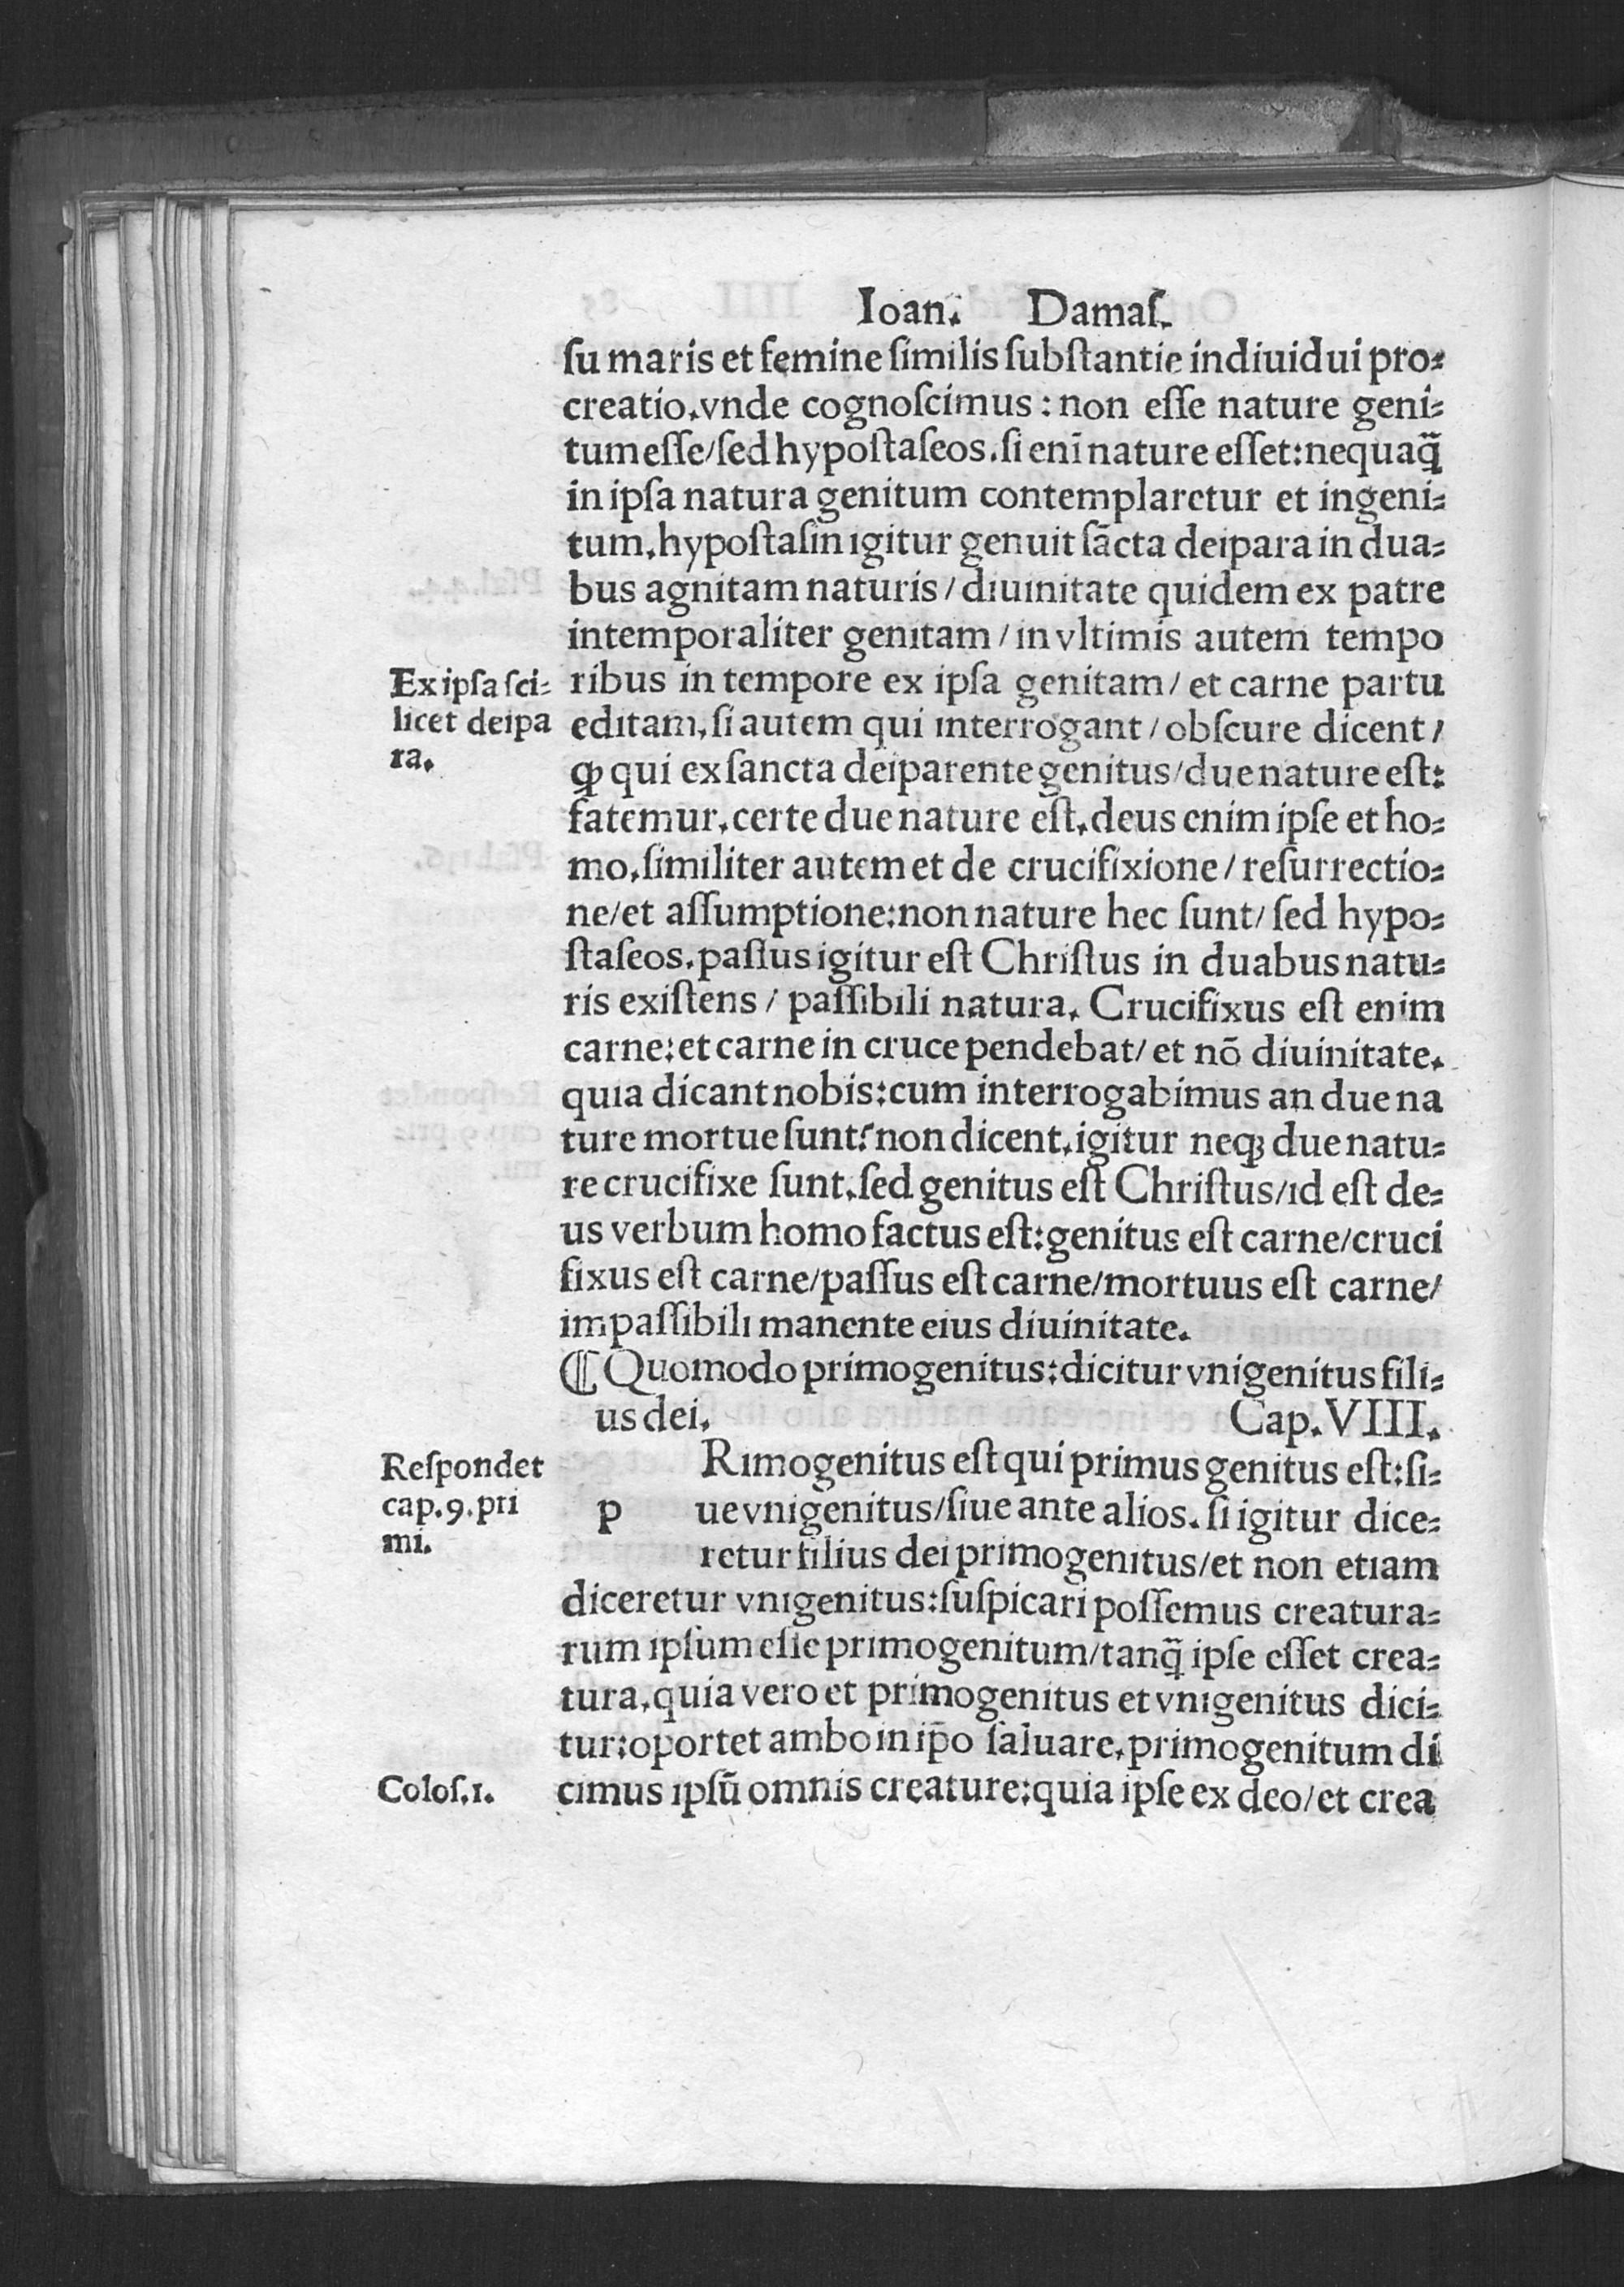 Ioan. Damaſ.
ſu maris et femine ſimilis ſubſtantie indiuidui pro⸗
creatio.vnde cognoſcimus: non eſſe nature geni⸗
tum eſſe/ſed hypoſtaſeos.ſi enī nature eſſet:nequaq̃
in ipſa natura genitum contemplaretur et ingeni⸗
tum.hypoſtaſin igitur genuit ſācta deipara in dua⸗
bus agnitam naturis/diuinitate quidem ex patre
intemporaliter genitam/in vltimis autem tempo
Ex ipſa ſci⸗
licet deipa
ra.
ribus in tempore ex ipſa genitam/et carne partu
editam.ſi autem qui interrogant/obſcure dicent/
ꝙ qui ex ſancta deiparente genitus/due nature eſt:
fatemur.certe due nature eſt.deus enim ipſe et ho⸗
mo.ſimiliter autem et de crucifixione/reſurrectio⸗
ne/et aſſumptione:non nature hec ſunt/ſed hypo⸗
ſtaſeos.paſſus igitur eſt Chriſtus in duabus natu⸗
ris exiſtens/paſſibili natura. Crucifixus eſt enim
carne:et carne in cruce pendebat/et nō diuinitate.
quia dicant nobis:cum interrogabimus an due na
ture mortue ſunt?non dicent.igitur neqꝫ due natu⸗
re crucifixe ſunt.ſed genitus eſt Chriſtus/id eſt de⸗
us verbum homo factus eſt:genitus eſt carne/cruci
fixus eſt carne/paſſus eſt carne/mortuus eſt carne/
impaſſibili manente eius diuinitate.
⸿ Quomodo primogenitus:dicitur vnigenitus fili⸗
us dei. Cap.VIII.
Reſpondet
cap.9.pri
mi.
p Rimogenitus eſt qui primus genitus eſt:ſi⸗
ue vnigenitus/ſiue ante alios.ſi igitur dice⸗
retur filius dei primogenitus/et non etiam
diceretur vnigenitus:ſuſpicari poſſemus creatura⸗
rum ipſum eſſe primogenitum/tanq̃ ipſe eſſet crea⸗
tura.quia vero et primogenitus et vnigenitus dici⸗
tur:oportet ambo in ip̄o ſaluare.primogenitum di
Coloſ.1.
cimus ipſū omnis creature:quia ipſe ex deo/et crea